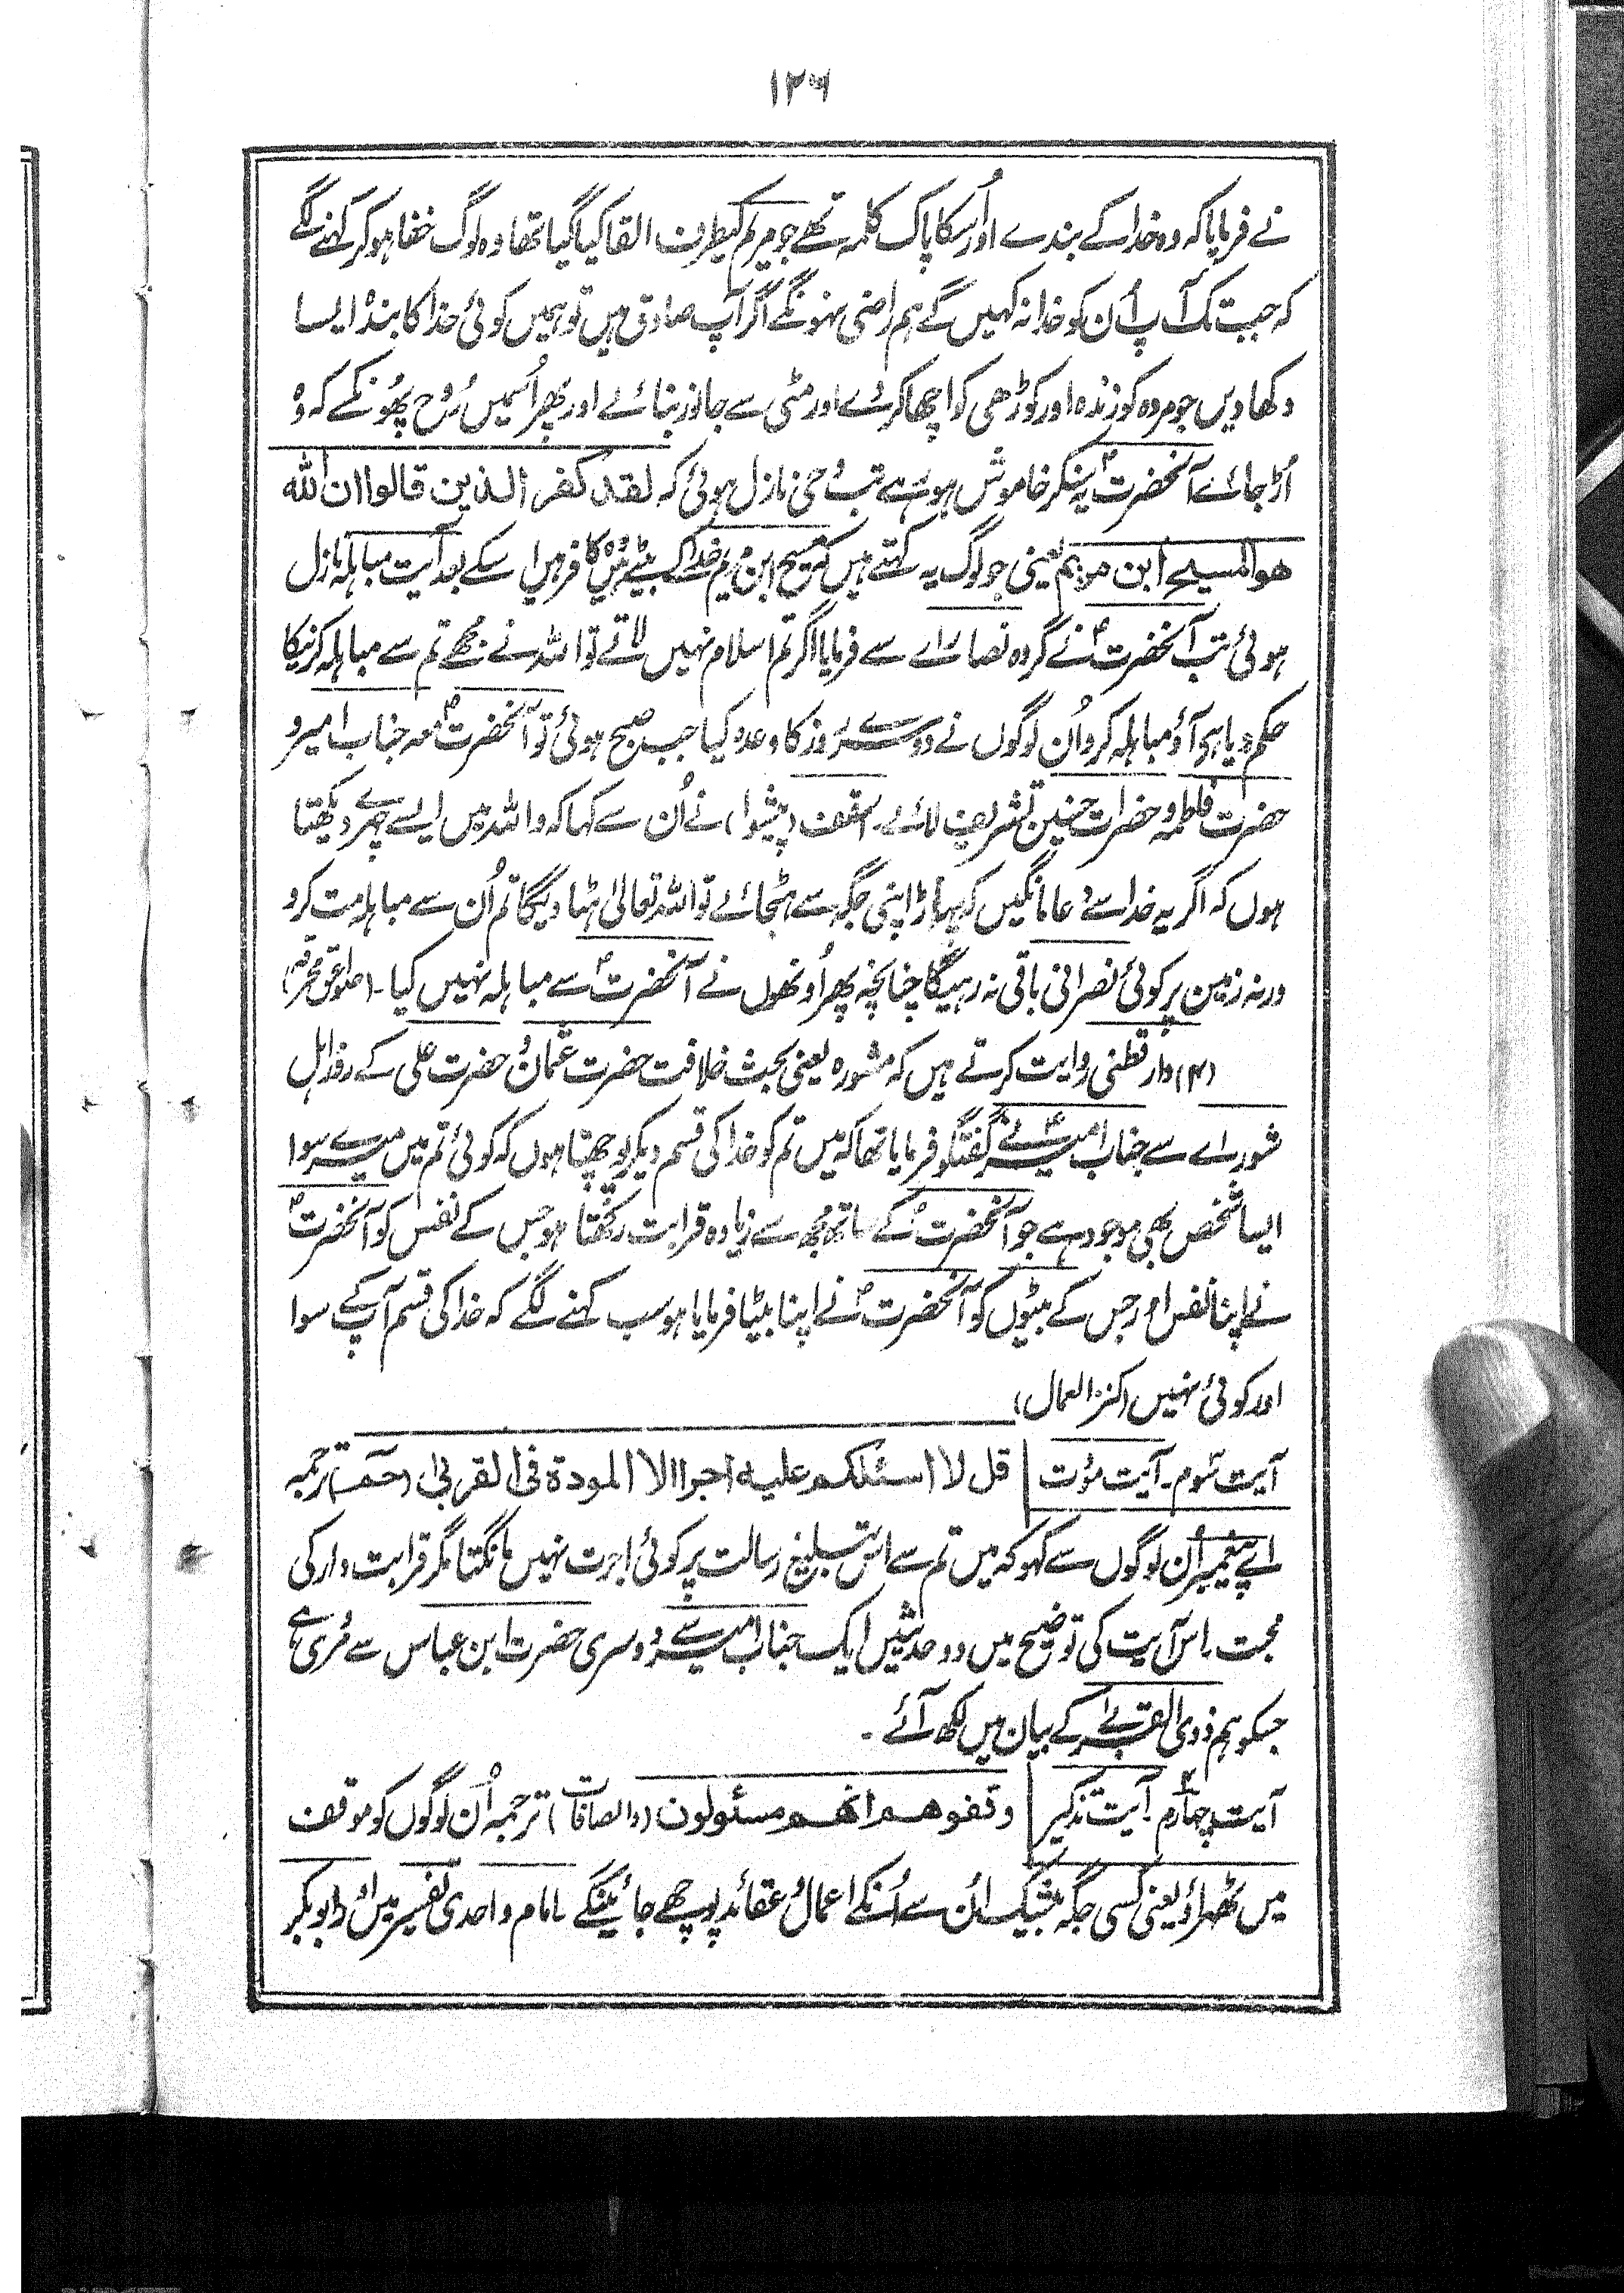 ۱۲۶
نے فرمایا کہ وہ خدا کے بندے اور اُسکا پاک کلمہ تھے جو مریم کیطرف القا کیا گیا تھا وہ لوگ خفا ہو کر کہنے لگے
کہ جب تک آپ اُن کو خدا نہ کہیں گے ہم راضی نہونگے اگر آپ صادق ہیں تو ہمیں کوئی خدا کا بندہ ایسا
دکھا دیں جو مردہ کو زندہ اور کوڑھی کو اچھا کرے اور مٹی سے جانور بنائے اور پھر اُسمیں رُوح پھُونکے کہ وہ
اُڑ جائے آنحضرتؐ یہ سنکر خاموش ہو رہے تب وحی نازل ہوئی کہ لقد کفر الذین قالوا ان اللہ
ھو المسیح ابن مریم یعنی جو لوگ یہ کہتے ہیں کہ مسیح ابن مریم خدا کے بیٹے ہیں وہ کافر ہیں اسکے بعد آیت مباہلہ نازل
ہوئی تب آنحضرتؐ نے گروہ نصارے سے فرمایا اگر تم اسلام نہیں لاتے تو اللہ نے مجھے تم سے مباہلہ کرنیکا
حکم دیا ہے آؤ مباہلہ کرو اُن لوگوں نے دوسرے روز کا وعدہ کیا جب صبح ہوئی تو آنحضرتؐ معہ جناب امیر و
حضرت فاطمہ و حضرات حسنین تشریف لائے۔ اسقف (پیشوا) نے اُن سے کہا کہ واللہ میں ایسے چہرے دیکھتا
ہوں کہ اگر یہ خدا سے دعا مانگیں کہ پہاڑ اپنی جگہ سے ہٹجائے تو اللہ تعالیٰ ہٹا دیگا تم اُن سے مباہلہ مت کرو
ورنہ زمین پر کوئی نصرانی باقی نہ رہیگا چنانچہ پھر اُونھوں نے آنحضرتؐ سے مباہلہ نہیں کیا۔ (صواعق محرقہ)
(۴) دارقطنی روایت کرتے ہیں کہ مشورہ یعنی بحث خلافت حضرت عثمانؓ و حضرت علی کے روز اہل
شورے سے جناب امیرؑ نے گفتگو فرمایا تھا کہ میں تم کو خدا کی قسم دیکر پوچھتا ہوں کہ کوئی تم میں میرے سوا
ایسا شخص بھی موجود ہے جو آنحضرتؐ کے ساتھ مجھ سے زیادہ قرابت رکھتا ہو جس کے نفس کو آنحضرتؐ
نے اپنا نفس اور جس کے بیٹوں کو آنحضرتؐ نے اپنا بیٹا فرمایا ہو سب کہنے لگے کہ خدا کی قسم آپ کے سوا
اور کوئی نہیں (کنز العمال)
آیت سوم۔ آیت مودت | قل لا اسئلکم علیہ اجرا الا المودۃ فی القربیٰ (حمعسق) ترجمہ
اے پیغمبر اُن لوگوں سے کہو کہ میں تم سے اس تبلیغ رسالت پر کوئی اجرت نہیں مانگتا مگر قرابت دار کی
محبت۔ اس آیت کی توضیح میں دو حدیثیں ایک جناب امیر سے دوسری حضرت ابن عباس سے مروی ہے
جسکو ہم ذوی القربے کے بیان میں لکھ آئے۔
آیت چہارم۔ آیت تذکیر | وقفوھم انھم مسئولون (والصافات) ترجمہ اُن لوگوں کو موقف
میں ٹھراؤ یعنی کسی جگہ بیشک اُن سے اُنکے اعمال و عقائد پوچھے جائینگے۔ امام واحدی تفسیر میں اور ابوبکر